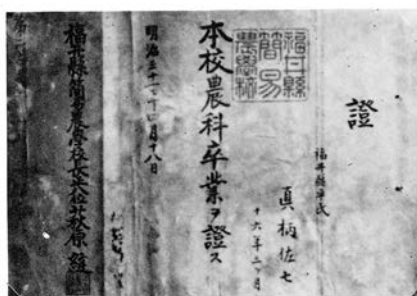 證
福井縣平民
真柄佐七
十六年二ヶ月
福井縣
簡易
農學校
本校農科卒業ヲ證ス
明治三十一年四月十八日
福井縣簡易農學校長